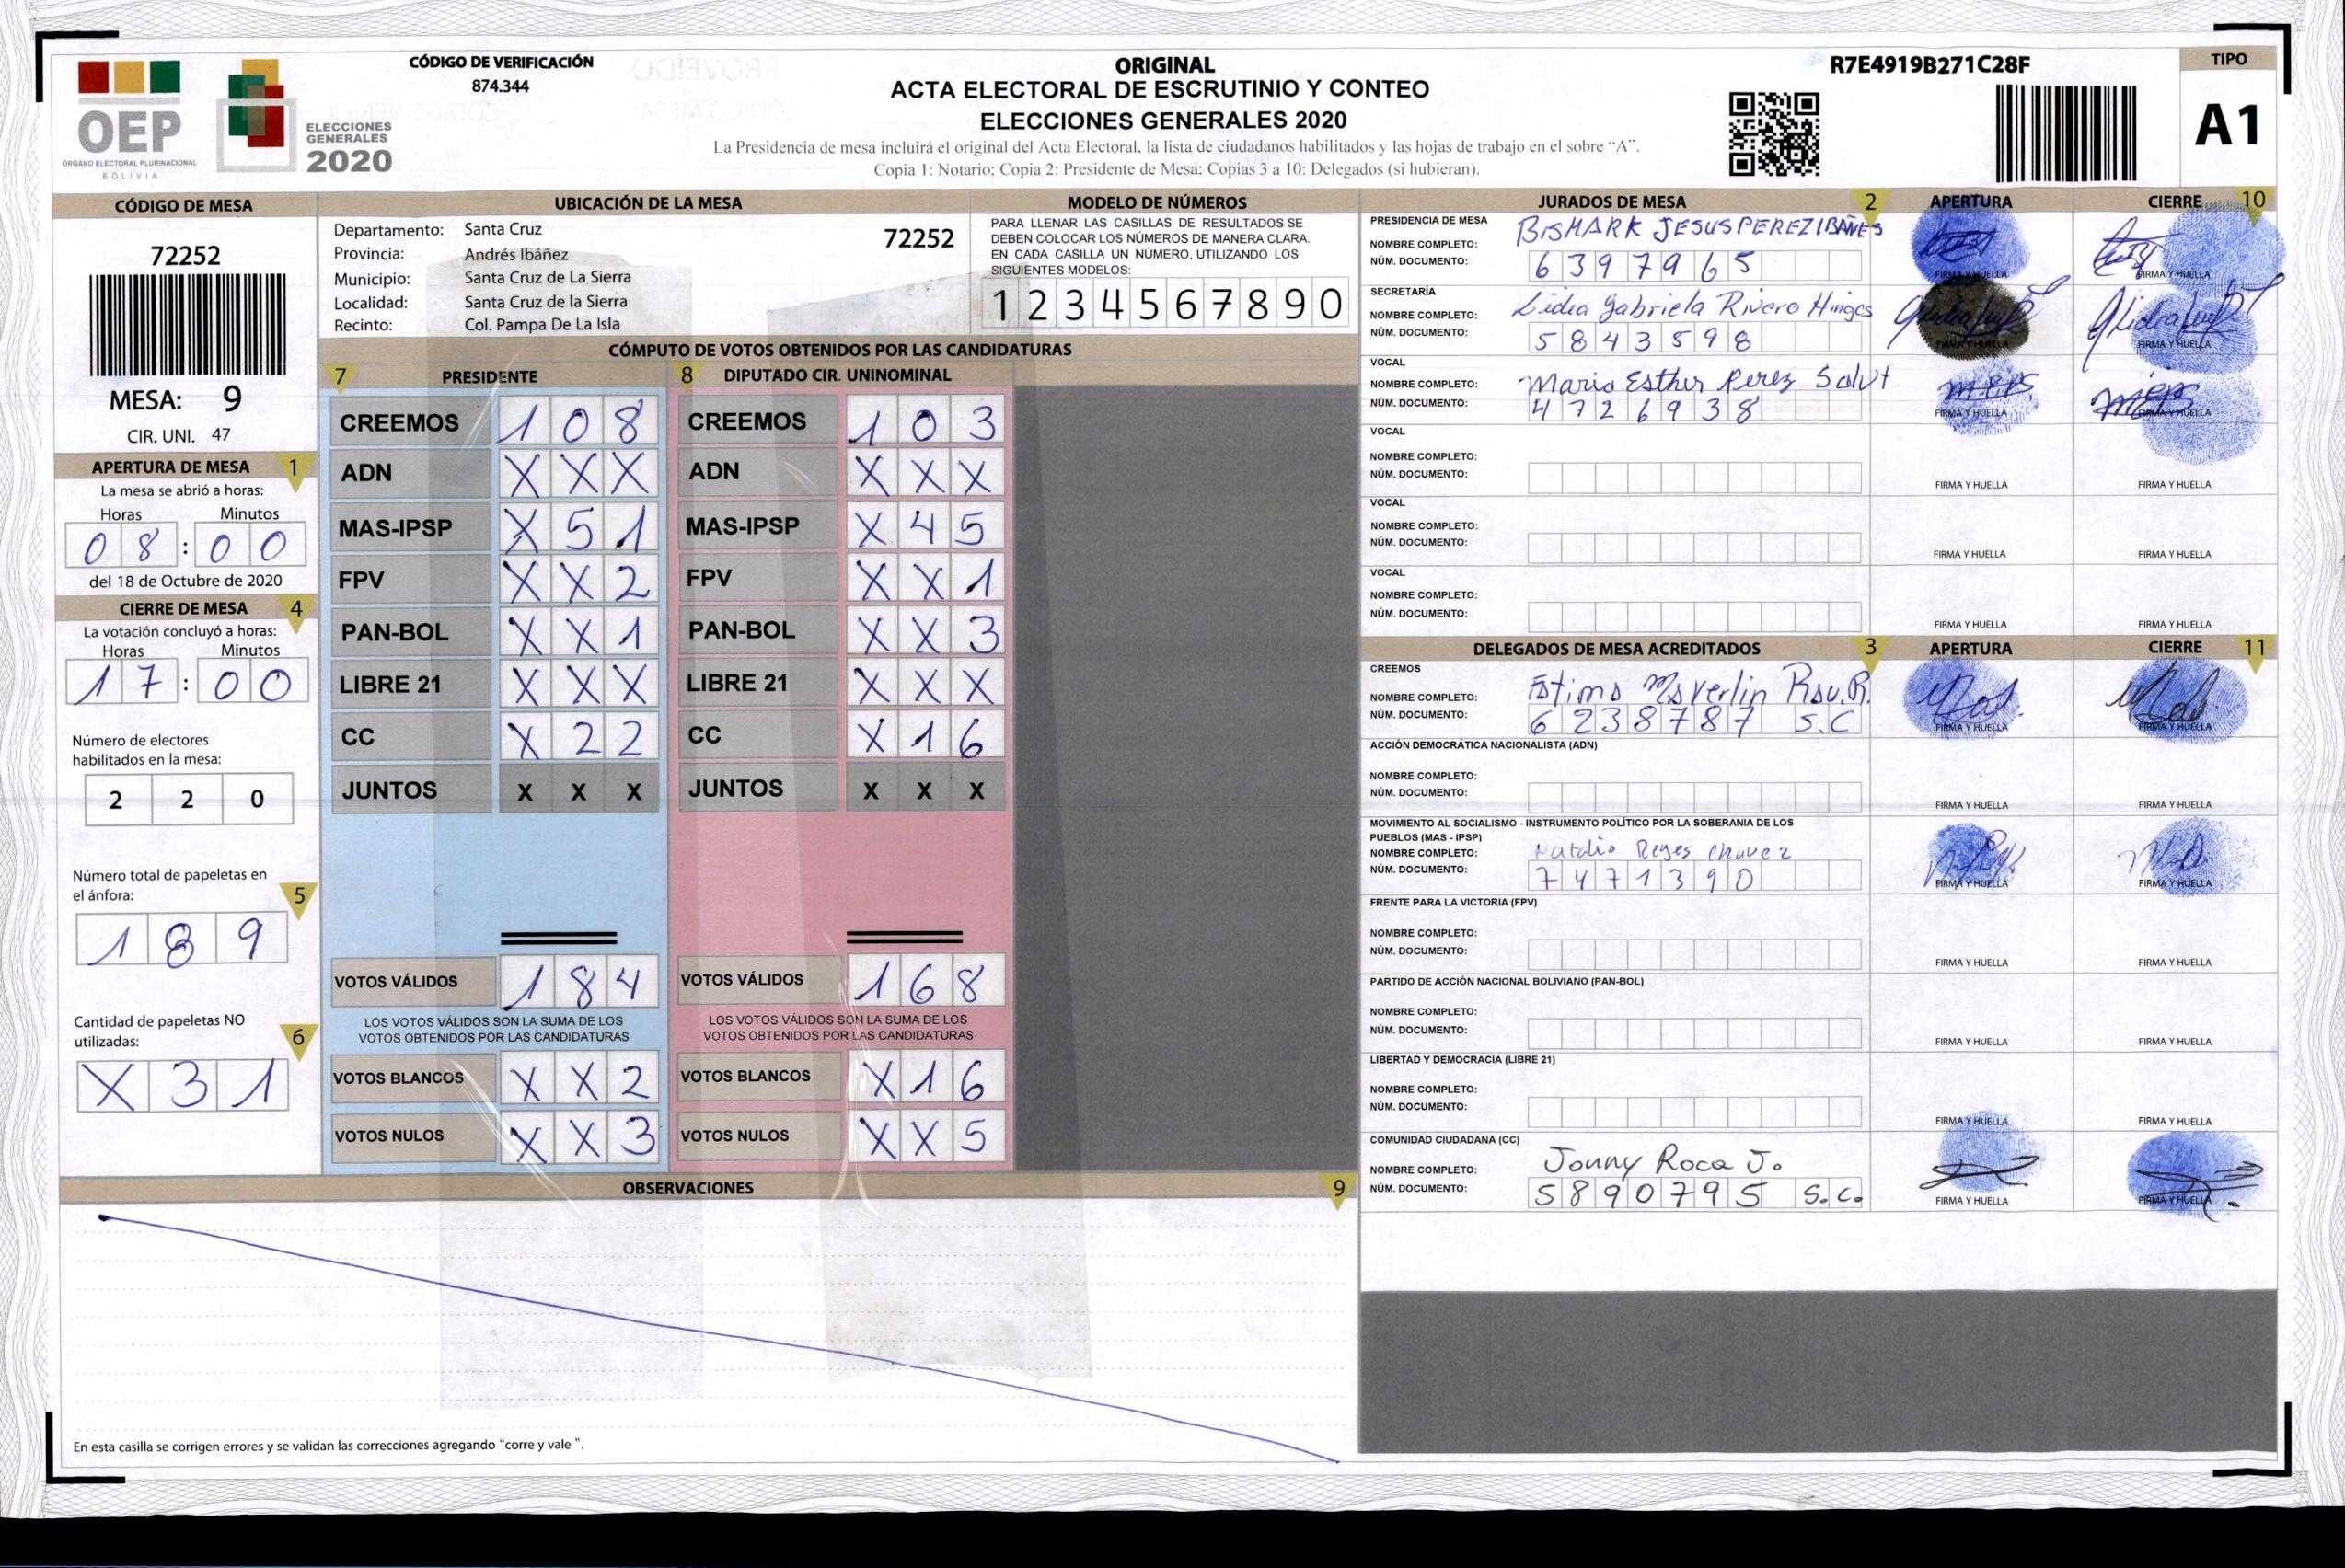 CÓDIGO DE VERIFICACIÓN
874.344
ORIGINAL
ACTA ELECTORAL DE ESCRUTINIO Y CONTEO
ELECCIONES GENERALES 2020
La Presidencia de mesa incluirá el original del Acta Electoral, la lista de ciudadanos habilitados y las hojas de trabajo en el sobre "A".
Copia 1: Notario: Copia 2: Presidente de Mesa: Copias 3 a 10: Delegados (si hubieran).
R7E4919B271C28F
TIPO
A1
OEP
ÓRGANO ELECTORAL PLURINACIONAL
BOLIVIA
ELECCIONES
GENERALES
2020
CÓDIGO DE MESA
72252
MESA: 9
CIR. UNI. 47
APERTURA DE MESA 1
La mesa se abrió a horas:
Horas Minutos
0 8 : 0 0
del 18 de Octubre de 2020
CIERRE DE MESA 4
La votación concluyó a horas:
Horas Minutos
1 7 : 0 0
Número de electores
habilitados en la mesa:
2 2 0
Número total de papeletas en
el ánfora: 5
1 8 9
Cantidad de papeletas NO
utilizadas: 6
X 3 1
UBICACIÓN DE LA MESA
Departamento: Santa Cruz
Provincia: Andrés Ibáñez
Municipio: Santa Cruz de La Sierra
Localidad: Santa Cruz de la Sierra
Recinto: Col. Pampa De La Isla
72252
MODELO DE NÚMEROS
PARA LLENAR LAS CASILLAS DE RESULTADOS SE
DEBEN COLOCAR LOS NÚMEROS DE MANERA CLARA.
EN CADA CASILLA UN NÚMERO, UTILIZANDO LOS
SIGUIENTES MODELOS:
1 2 3 4 5 6 7 8 9 0
CÓMPUTO DE VOTOS OBTENIDOS POR LAS CANDIDATURAS
7 PRESIDENTE
CREEMOS 1 0 8
ADN X X X
MAS-IPSP X 5 1
FPV X X 2
PAN-BOL X X 1
LIBRE 21 X X X
CC X 2 2
JUNTOS X X X
VOTOS VÁLIDOS 1 8 4
LOS VOTOS VÁLIDOS SON LA SUMA DE LOS
VOTOS OBTENIDOS POR LAS CANDIDATURAS
VOTOS BLANCOS X X 2
VOTOS NULOS X X 3
8 DIPUTADO CIR. UNINOMINAL
CREEMOS 1 0 3
ADN X X X
MAS-IPSP X 4 5
FPV X X 1
PAN-BOL X X 3
LIBRE 21 X X X
CC X 1 6
JUNTOS X X X
VOTOS VÁLIDOS 1 6 8
LOS VOTOS VÁLIDOS SON LA SUMA DE LOS
VOTOS OBTENIDOS POR LAS CANDIDATURAS
VOTOS BLANCOS X 1 6
VOTOS NULOS X X 5
OBSERVACIONES 9
En esta casilla se corrigen errores y se validan las correcciones agregando "corre y vale ".
JURADOS DE MESA 2 APERTURA CIERRE 10
PRESIDENCIA DE MESA
NOMBRE COMPLETO: BISMARK JESUS PEREZ IBAÑES
NÚM. DOCUMENTO: 6 3 9 7 9 6 5
FIRMA Y HUELLA FIRMA Y HUELLA
SECRETARÍA
NOMBRE COMPLETO: Lidia Gabriela Rivero
NÚM. DOCUMENTO: 5 8 4 3 5 9 8
FIRMA Y HUELLA FIRMA Y HUELLA
VOCAL
NOMBRE COMPLETO: Maria Esther Perez
NÚM. DOCUMENTO: 4 7 2 6 9 3 8
FIRMA Y HUELLA FIRMA Y HUELLA
VOCAL
NOMBRE COMPLETO:
NÚM. DOCUMENTO:
FIRMA Y HUELLA FIRMA Y HUELLA
VOCAL
NOMBRE COMPLETO:
NÚM. DOCUMENTO:
FIRMA Y HUELLA FIRMA Y HUELLA
VOCAL
NOMBRE COMPLETO:
NÚM. DOCUMENTO:
FIRMA Y HUELLA FIRMA Y HUELLA
DELEGADOS DE MESA ACREDITADOS 3 APERTURA CIERRE 11
CREEMOS
NOMBRE COMPLETO:
NÚM. DOCUMENTO: 6 2 3 8 7 8 7 S.C
FIRMA Y HUELLA FIRMA Y HUELLA
ACCIÓN DEMOCRÁTICA NACIONALISTA (ADN)
NOMBRE COMPLETO:
NÚM. DOCUMENTO:
FIRMA Y HUELLA FIRMA Y HUELLA
MOVIMIENTO AL SOCIALISMO - INSTRUMENTO POLÍTICO POR LA SOBERANIA DE LOS
PUEBLOS (MAS - IPSP)
NOMBRE COMPLETO: Natalio Reyes Chavez
NÚM. DOCUMENTO: 7 4 7 1 3 9 0
FIRMA Y HUELLA FIRMA Y HUELLA
FRENTE PARA LA VICTORIA (FPV)
NOMBRE COMPLETO:
NÚM. DOCUMENTO:
FIRMA Y HUELLA FIRMA Y HUELLA
PARTIDO DE ACCIÓN NACIONAL BOLIVIANO (PAN-BOL)
NOMBRE COMPLETO:
NÚM. DOCUMENTO:
FIRMA Y HUELLA FIRMA Y HUELLA
LIBERTAD Y DEMOCRACIA (LIBRE 21)
NOMBRE COMPLETO:
NÚM. DOCUMENTO:
FIRMA Y HUELLA FIRMA Y HUELLA
COMUNIDAD CIUDADANA (CC)
NOMBRE COMPLETO: Jonny Roca J.
NÚM. DOCUMENTO: 5 8 9 0 7 9 5 S.C.
FIRMA Y HUELLA FIRMA Y HUELLA